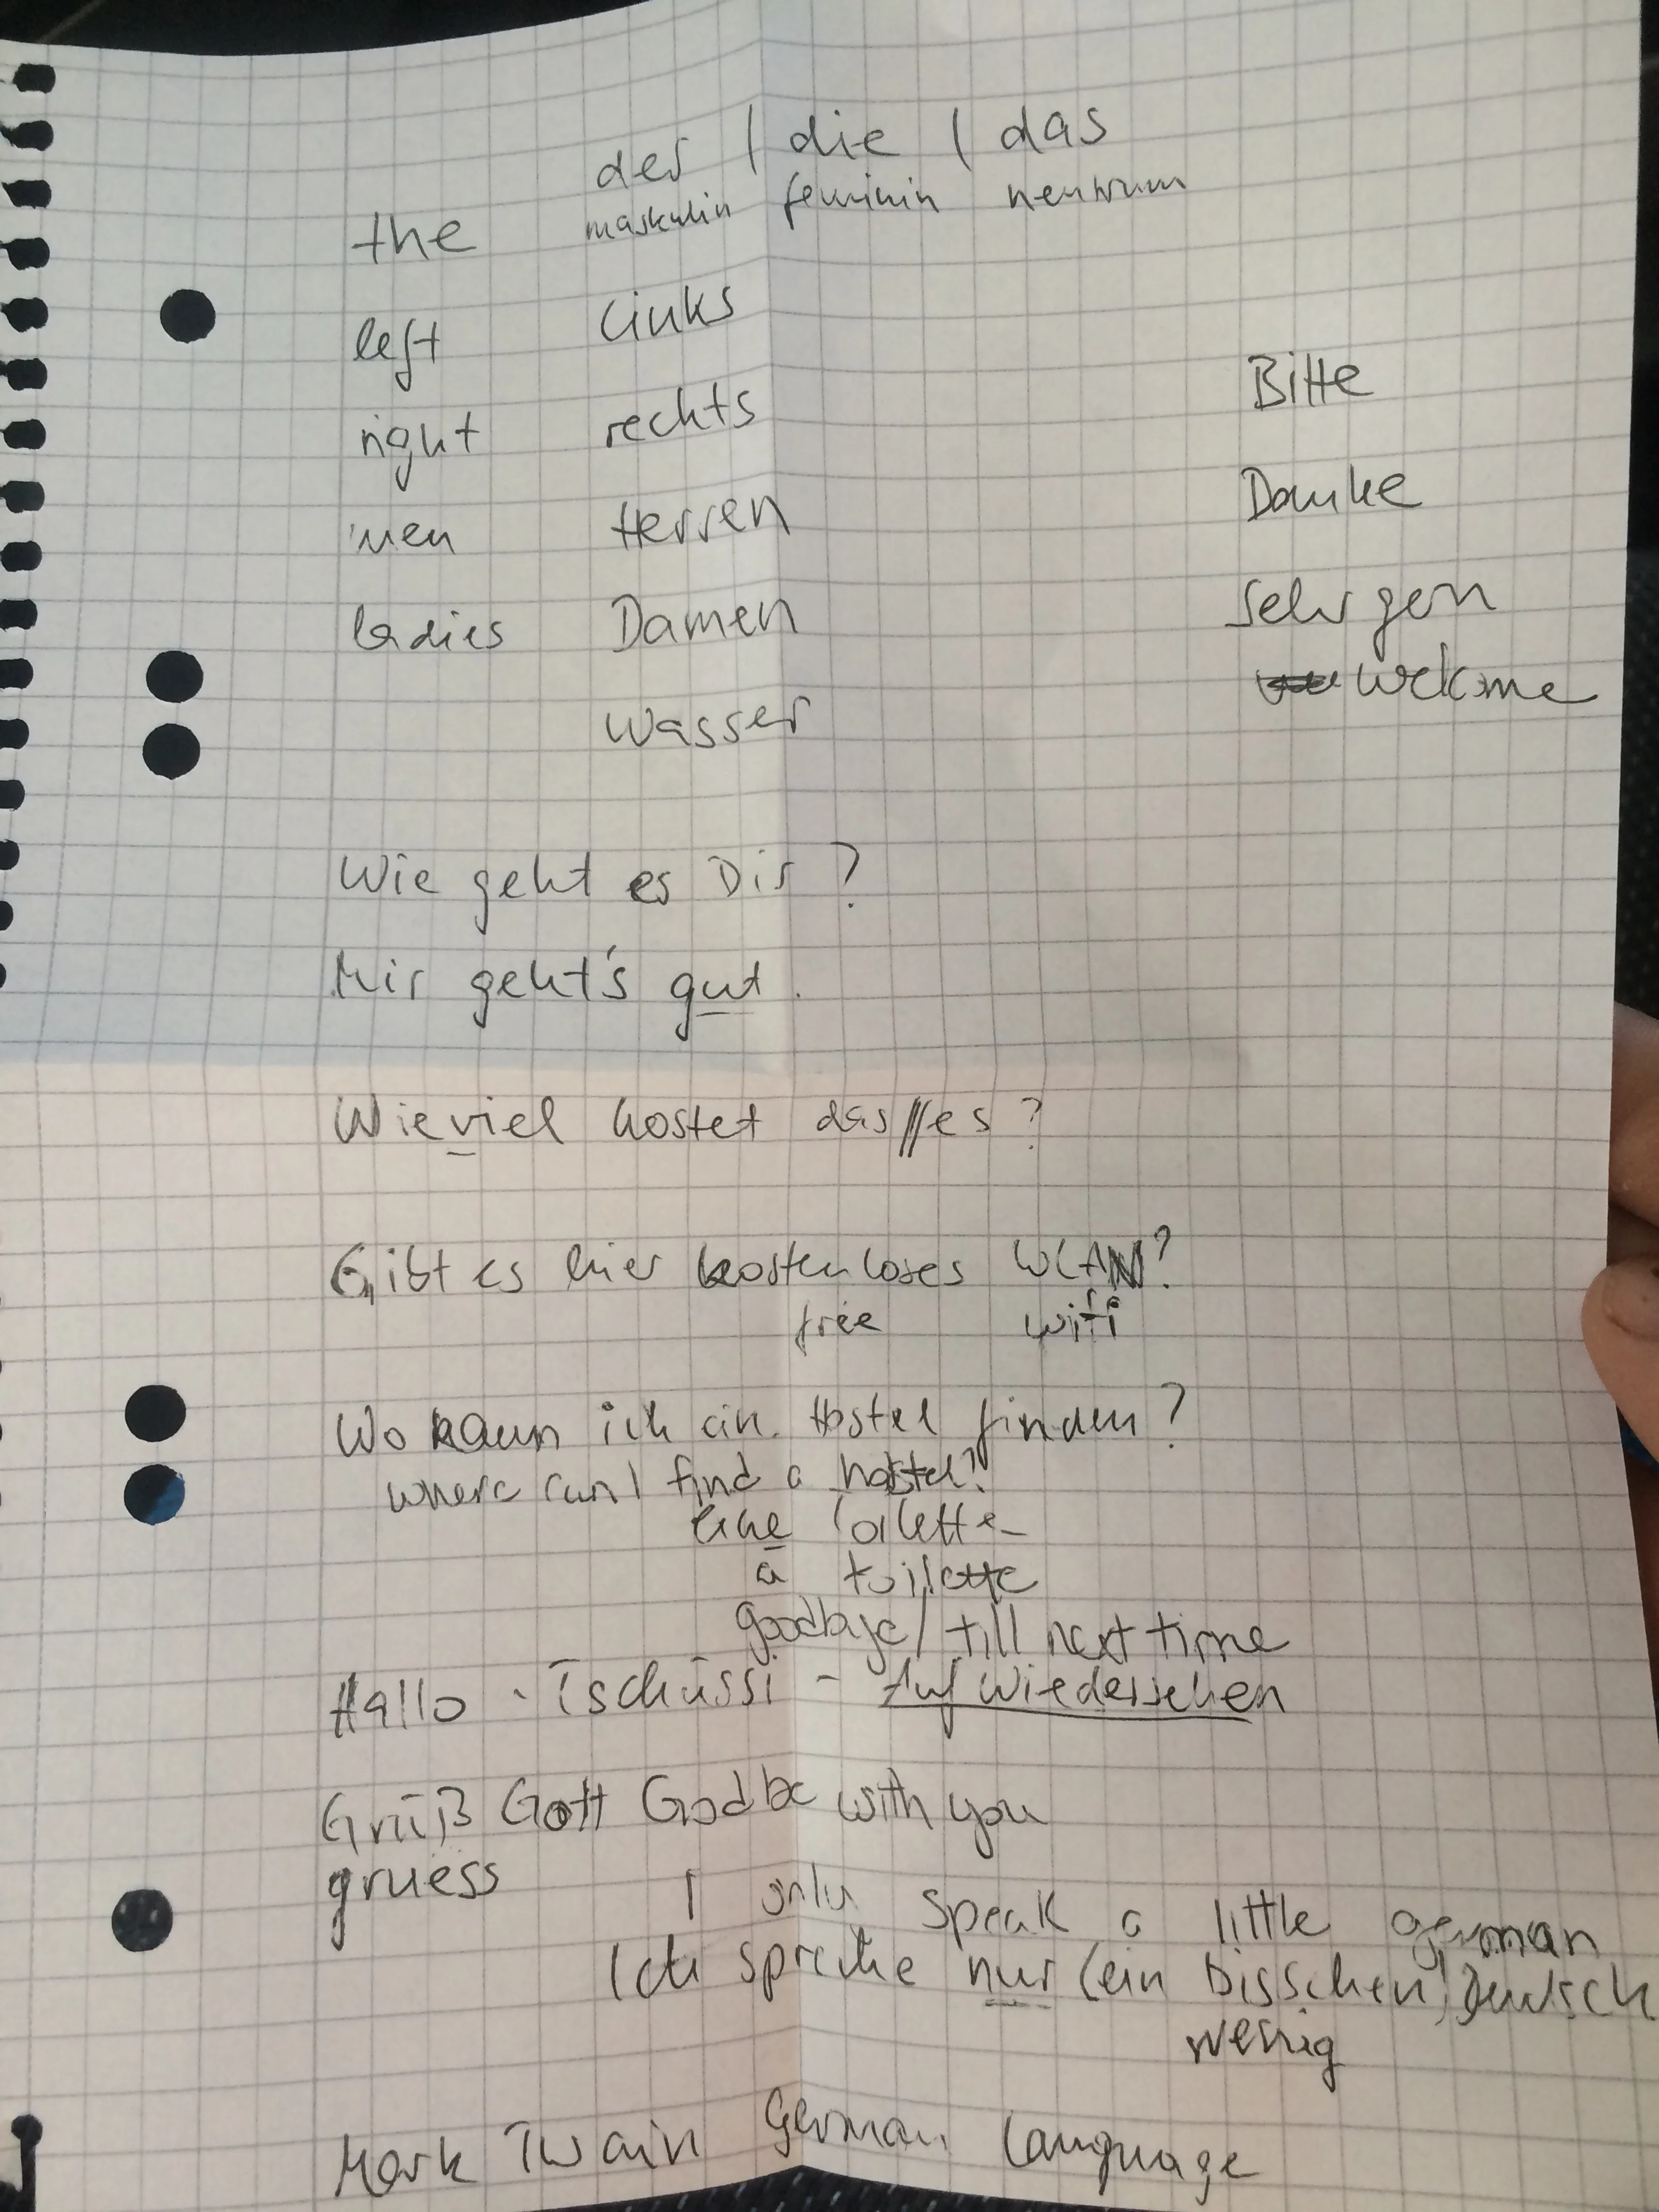 der | die | das
the maskulin feminin neutrum
left links
right rechts
men Herren
ladies Damen
Wasser
Bitte
Danke
Sehr gern
welcome
Wie geht es Dir ?
Mir geht's gut.
Wieviel kostet das // es ?
Gibt es hier kostenloses WLAN?
free wifi
Wo kann ich ein Hostel finden ?
where can I find a hostel?
eine Toilette
a toilette
goodbye / till next time
Hallo - Tschüssi - Auf Wiedersehen
Grüß Gott God be with you
gruess
I only speak a little german
Ich spreche nur (ein bisschen) Deutsch
wenig
Mark Twain German Language